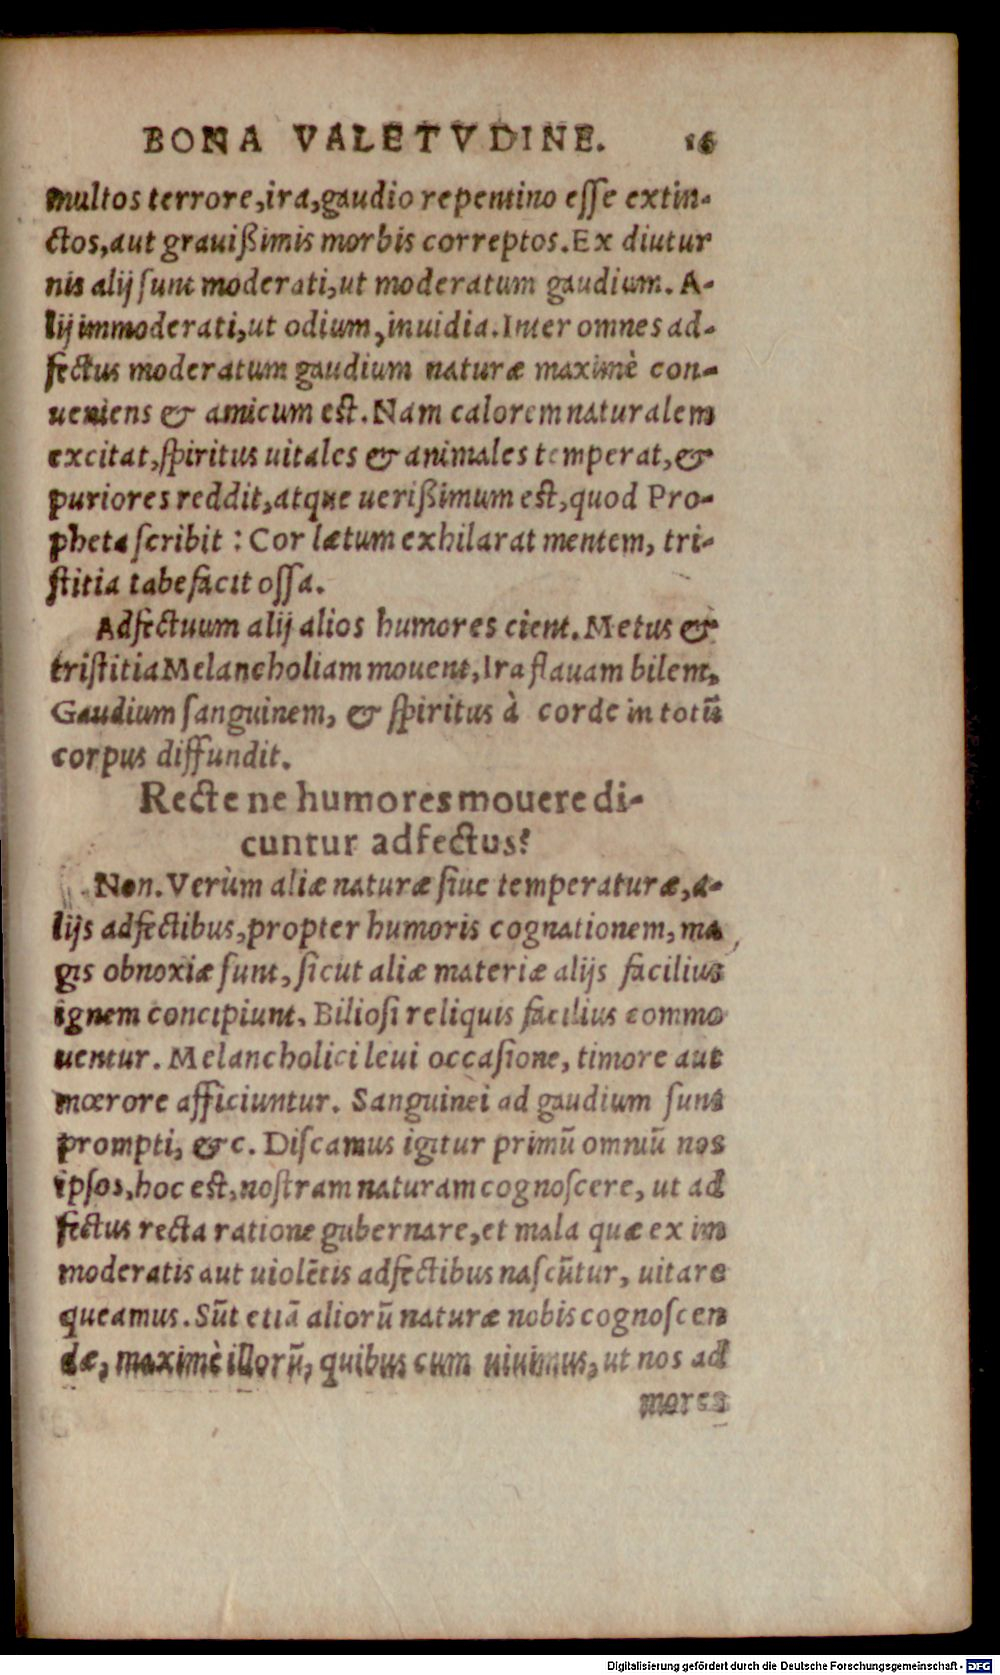 BONA VALETVDINE. 16
multos terrore,ira,gaudio repentino esse extin-
ctos,aut grauißimis morbis correptos.Ex diutur
nis alij sunt moderati,ut moderatum gaudium. A-
lij immoderati,ut odium,inuidia.Inter omnes ad-
fectus moderatum gaudium naturæ maximè con-
ueniens & amicum est.Nam calorem naturalem
excitat,spiritus uitales & animales temperat,&
puriores reddit,atque uerißimum est,quod Pro-
pheta scribit : Cor lætum exhilarat mentem, tri-
stitia tabefacit ossa.
Adfectuum alij alios humores cient.Metus &
tristitia Melancholiam mouent,Ira flauam bilem,
Gaudium sanguinem, & spiritus à corde in totū
corpus diffundit.
Recte ne humores mouere di-
cuntur adfectus?
Non.Verùm aliæ naturæ siue temperaturæ,a-
lijs adfectibus,propter humoris cognationem, ma
gis obnoxiæ sunt, sicut aliæ materiæ alijs facilius
ignem concipiunt. Biliosi reliquis facilius commo
uentur. Melancholici leui occasione, timore aut
mœrore afficiuntur. Sanguinei ad gaudium sunt
prompti, &c. Discamus igitur primū omniū nos
ipsos,hoc est,nostram naturam cognoscere, ut ad
fectus recta ratione gubernare,et mala quæ ex im
moderatis aut uiolētis adfectibus nascūtur, uitare
queamus.Sūt etiā aliorū naturæ nobis cognoscen
dæ, maximè illorū, quibus cum uiuimus, ut nos ad
mores
Digitalisierung gefördert durch die Deutsche Forschungsgemeinschaft - DFG